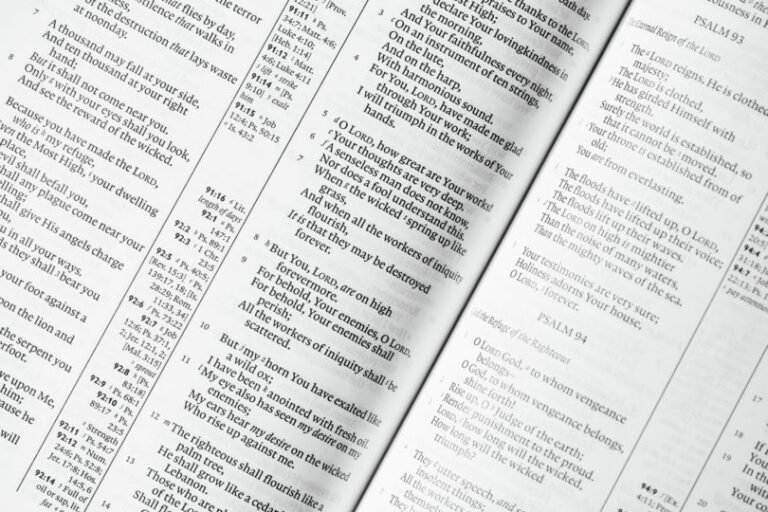 the terror
that flies by day,
pestilence that walks in
of the destruction that lays waste
at noonday.
7 A thousand may fall at your side,
And ten thousand at your right
hand;
But it shall not come near you.
8 Only with your eyes shall you look,
And see the reward of the wicked.
Because you have made the LORD,
who is my refuge,
Even the Most High, your dwelling
place,
evil shall befall you,
shall any plague come near your
dwelling;
shall give His angels charge
you,
you in all your ways.
hands they shall bear you
your foot against a
upon the lion and
the serpent you
underfoot.
love upon Me,
him;
because he
will
91:11
Luke 4:10;
[Heb. 1:14]
91:12 Matt.
4:6; Luke 4:11
strike
91:14
91:15 Job
12:4; Ps. 50:15
Is. 43:2
91:16 Lit.
length of days
92:1 Ps.
147:1
92:2 Ps. 89:1
92:3 1 Chr.
23:5
92:5 Ps. 40:5;
[Rev. 15:3] Ps.
139:17, 18; [Is.
28:29; Rom.
11:33, 34]
92:6 Ps. 73:22
92:7 Job
12:6; Ps. 37:1,
2; Jer. 12:1, 2;
[Mal. 3:15]
92:8 [Ps.
83:18]
92:9 Ps. 68:1
92:10 Ps.
89:17 Ps.
23:5
Strength
92:11 Ps. 54:7
92:12 Num.
24:6; Ps. 52:8;
Jer. 17:8; Hos.
14:5, 6
92:14 Full of
oil or sap, lit.
fat
thanks to the LORD,
praises to Your name,
Most High;
declare Your lovingkindness in
the morning,
And Your faithfulness every night,
3 On an instrument of ten strings,
On the lute,
And on the harp,
With harmonious sound.
4 For You, LORD, have made me glad
through Your work;
I will triumph in the works of Your
hands.
5 O LORD, how great are Your works!
Your thoughts are very deep.
6 A senseless man does not know,
Nor does a fool understand this.
7 When the wicked spring up like
grass,
And when all the workers of iniquity
flourish,
It is that they may be destroyed
forever.
8 But You, LORD, are on high
forevermore.
9 For behold, Your enemies, O LORD,
For behold, Your enemies shall
perish;
All the workers of iniquity shall be
scattered.
10 But my horn You have exalted like
a wild ox;
I have been anointed with fresh oil.
11 My eye also has seen my desire on my
enemies;
My ears hear my desire on the wicked
Who rise up against me.
12 The righteous shall flourish like a
palm tree,
He shall grow like a cedar
Lebanon.
13 Those who are
Shall
14
PSALM 93
The Eternal Reign of the LORD
The LORD reigns, He is clothed
majesty;
The LORD is clothed,
He has girded Himself with
strength.
Surely the world is established, so
that it cannot be moved.
2 Your throne is established from of
old;
You are from everlasting.
The floods have lifted up, O LORD,
The floods have lifted up their voice;
The floods lift up their waves.
The LORD on high is mightier
Than the noise of many waters,
Than the mighty waves of the sea.
5 Your testimonies are very sure;
Holiness adorns Your house,
O LORD, forever.
PSALM 94
God the Refuge of the Righteous
O LORD God, to whom vengeance
belongs—
O God, to whom vengeance belongs,
shine forth!
2 Rise up, O Judge of the earth;
Render punishment to the proud.
3 LORD, how long will the wicked,
How long will the wicked
triumph?
4 They utter speech, and
insolent things;
All the workers of
themselves
They
94:9
20
17
18